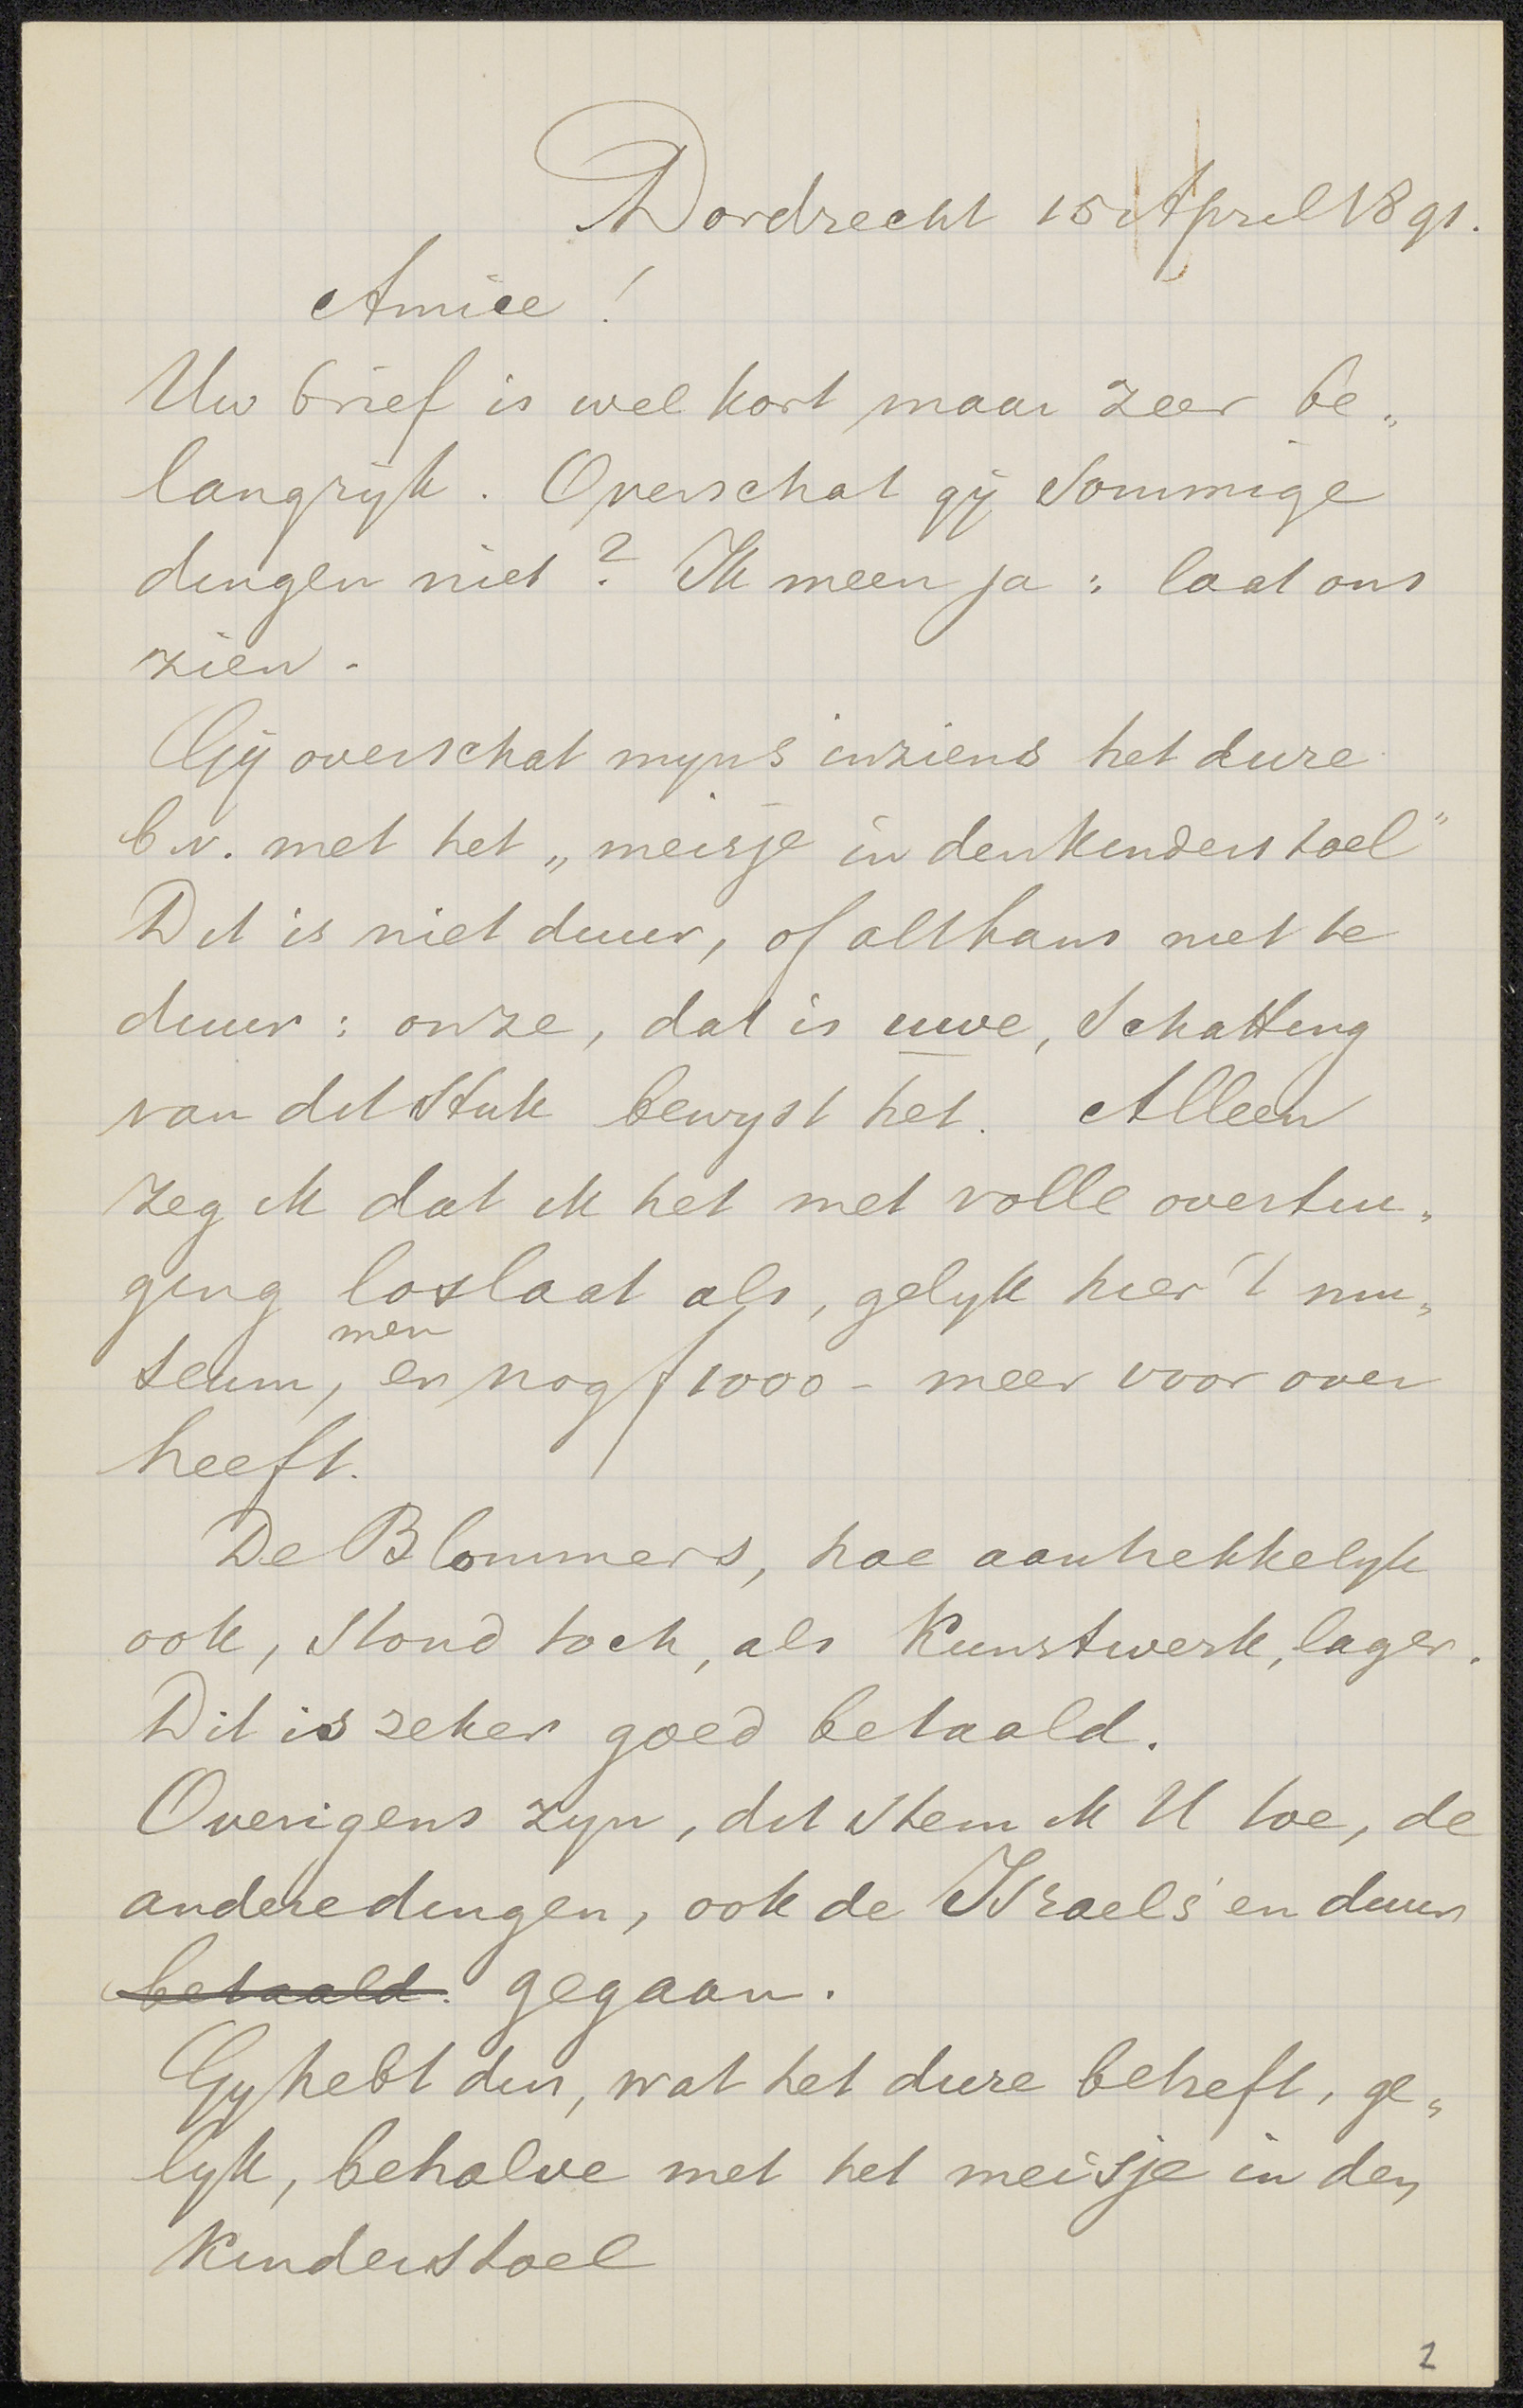 Dordrecht 15 April 1891.
Amice!
Uw brief is wel kort maar zeer be„
langrijk. Overschat gij sommige
dingen niet? Ik meen ja: laat ons
zien.
Gij overschat myns inziens het dure
bv. met het „meisje in den kinderstoel"
Dit is niet duur, of althans niet te
duur: onze, dat is uwe, schatting
van dit stuk bewyst het. Alleen
zeg ik dat ik het met volle overtui„
ging loslaat als, gelyk hier 't mu„
men
seum, er nog f1000- meer voor over
heeft.
De Blommers, hoe aantrekkelyk
ook, stond toch, als kunstwerk, lager.
Dit is zeker goed betaald.
Overigens zyn, dit stem ik U toe, de
andere dingen, ook de Israels' en duur
betaald. gegaan.
Gy hebt dus, wat het dure betreft, ge„
lyk, behalve met het meisje in den
kinderstoel
2